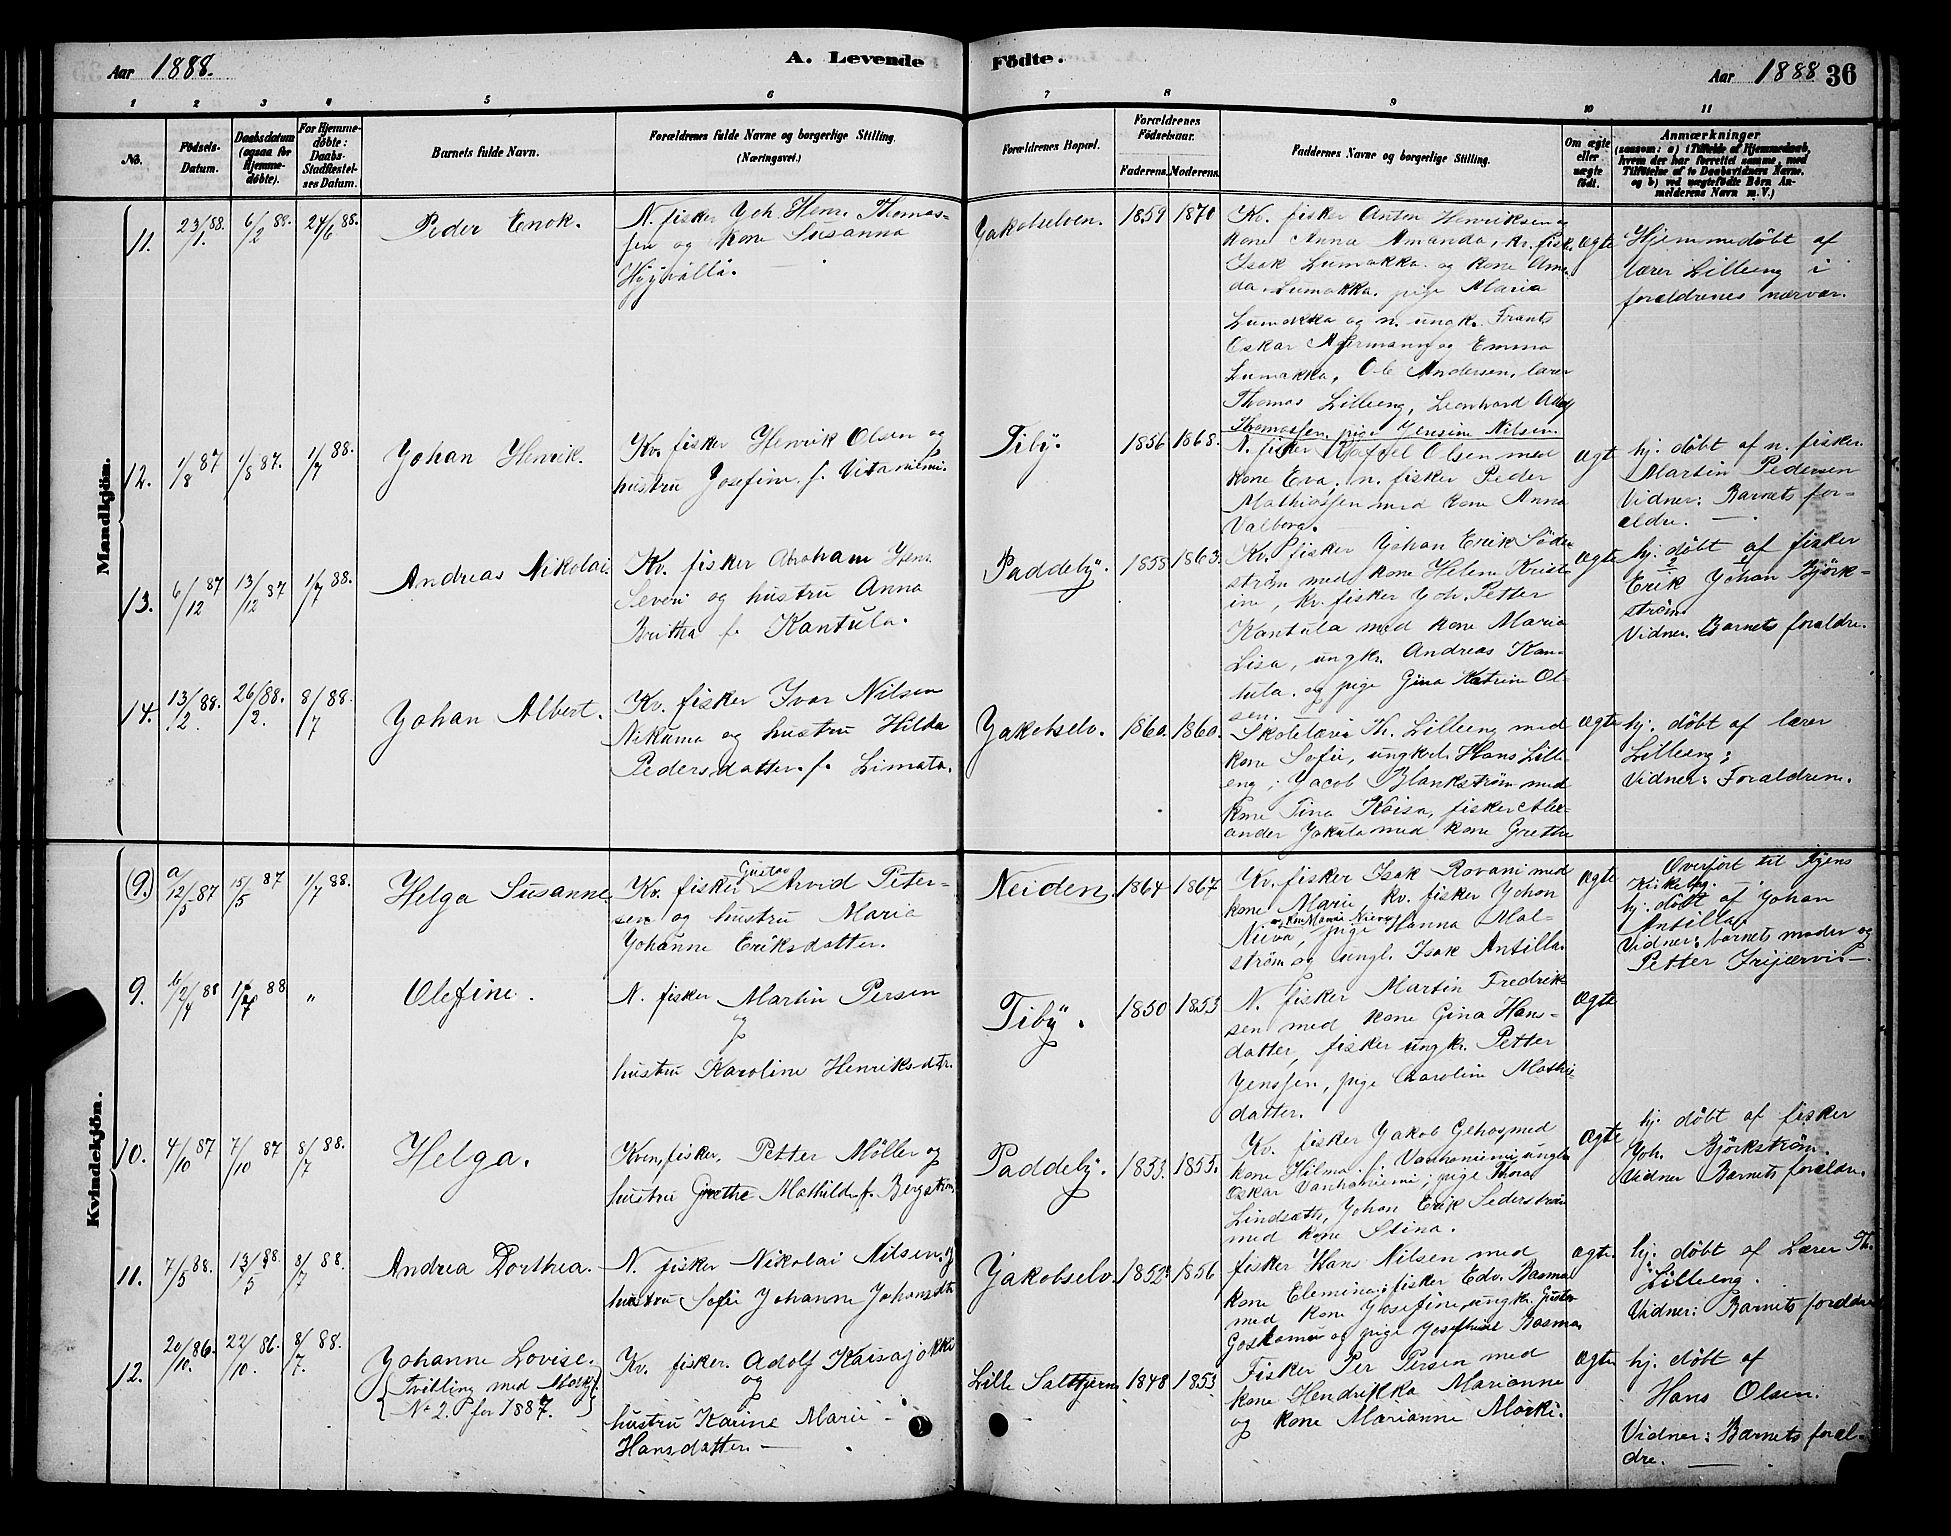 Aar 1888.
A. Levende
Födte.
Aar 1888
36
1 2 3 4 5 6 7 8 9 10 11
No.
Födsels-
Datum.
Daabsdatum
(ogsaa for
Hjemme-
döbte).
For Hjemme-
döbte:
Daabs-
Stadfæstel-
ses Datum.
Barnets fulde Navn.
Forældrenes fulde Navne og borgerlige Stilling.
(Næringsvei.)
Forældrenes Bopæl.
Forældrenes
Födselsaar.
Faderens.
Moderens.
Faddernes Navne og borgerlige Stilling.
Om ægte
eller
uægte
født.
Anmærkninger
(saasom: a) i Tilfælde af Hjemmedaab,
hvem der har forrettet samme, med
Tilföielse af to Daabsvidners Navne.
og b) ved uægtefødte Börn An-
melderens Navn m. V.)
Mandkjön.
11.
23/1 88.
6/2 88.
24/6 88.
Peder Enok.
N. fisker Joh. Henr. Thomas-
sen og kone Susanna
Jakobselven.
1859
1871
Kv. fisker Anton Henriksen og
kone Anna Amanda, kv. fisk.
Isak Lumakka og kone Aman-
da Lumakka, pige Maria
Lumakka og n. ungk. Frants
Oskar og Emma
Lumakka, Ole Andersen, lærer
Thomas Lilleeng, Leonhard Adolf
Thomassen, pige Jensine Nilsen.
Ægte
Hjemmedöbt af
lærer Lilleeng i
forældrenes nærvær.
12.
1/8 87
1/8 87.
1/7 88.
Johan Henrik.
Kv. fisker Henrik Olsen og
hustru Josefine f. Vitaniemi.
Tiby.
1856
1868.
N. fisker Olsen med
kone Eva, n. fisker Peder
Mathiassen med kone Anna
Valborg.
Ægte
hj. döbt af n. fisker
Martin Pedersen
Vidner: Barnets for-
ældre.
13.
6/12 87
13/12 87
1/7 88.
Andreas Nikolai.
Kv. fisker Abraham Henr.
Severi og hustru Anna
Britha f. Kantula.
Paddeby.
1858
1863.
Kv. fisker Johan Erik Söder-
ström med kone Helene Krist-
ine, kv. fisker Joh. Petter
Kantula med kone Maria
Lisa, ungk. Andreas Kan-
tula og pige Gina Katrine Ol-
sen.
Ægte
hj. döbt af fisker
Erik Johan Björk-
ström
Vidner: Barnets forældre.
14.
13/2 88.
26/2 88.
8/7 88.
Johan Albert.
Kv. fisker Ivar Nilsen
Nikuma og hustru Hilda
Pedersdatter f. Limata.
Jakobselv.
1860.
1860.
Skolelærer Th. Lilleeng med
kone Sofie, ungkl. Hans Lille-
eng; Jacob Blankström med
kone Tina Kaisa, fisker Alex-
ander Jakula med kone Grethe
Ægte
hj. döbt af lærer
Lilleeng;
Vidner: Forældrene.
Kvindekjön.
(9.)
a
12/5 87
15/5 87
1/7 88.
Helga Susanne
Kv. fisker Gustav Arvid Peter-
sen og hustru Maria
Johanne Eriksdatter.
Neiden.
1864
1867
Kv. fisker Isak Rovani med
kone Marie, kv. fisker Johan
Nieva, og kone Maria Nieva, pige Hanna Mal-
ström og ungk. Isak Antilla.
Ægte
Overfört til Byens
Kirkebog.
hj. döbt af Johan
Antilla
Vidner: barnets moder og
Petter
9.
b
88
88
"
Olefine.
N. fisker Martin Persen
og
hustru Karoline Henriksdtr.
Tiby.
1850
1853
N. fisker Martin Fredrik-
sen med kone Gina Hans-
datter, fisker ungk. Petter
Jenssen, pige Caroline Mathis-
datter.
Ægte
10.
4/10 87
7/10 87
8/7 88.
Helga.
Kven fisker, Petter Möller og
hustru Grethe Mathilde f. Bergström.
Paddeby.
1853.
1855.
Kv. fisker Jakob med
kone Hilma f. Vanhaniemi, ungk.
Oskar Vanhaniemi, pige Thora
Lindsæth, Johan Erik Sederström
med kone Stina.
Ægte
hj. döbt af fisker
Joh. Björkström.
Vidner Barnets forældre.
11.
7/5 88.
13/5 88.
8/7 88.
Andrea Dorthea.
N. fisker Nikolai Nilsen og
hustru Sofie Johanne Johansdtr.
Jakobselv.
1852
1856
fisker Hans Nilsen med
kone Elemina, fisker Edv. Basma
med kone Josefine, ungk. Gustav
Goskamu og pige Josefine Basma.
Ægte.
hj. döbt af Lærer Th.
Lilleeng.
Vidner: Barnets forældre
12.
20/10 86.
22/10 86.
8/7 88.
Johanne Lovise.
(Tvilling med Mandkj.
No 2. for 1887.)
Kv. fisker Adolf Kaisajokka
og
hustru Karine Marie
Hansdatter
Lille Saltfjern
1848
1853
Fisker Per Persen med
kone Hendrikka Marianne
og kone Marianne Morki.
Ægte
hj. döbt af
Hans Olsen.
Vidner: Barnets foræl-
dre.